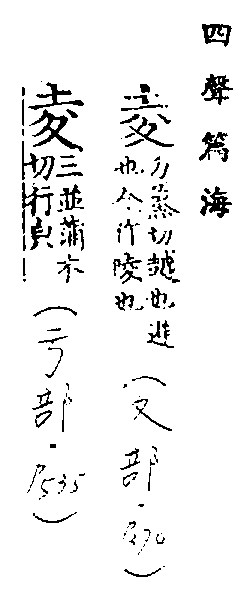 四聲篇海
夌
力蒸切越也
也今作陵也
(夊部．P.)
三並蒲木
切行皃
(部．P.535)